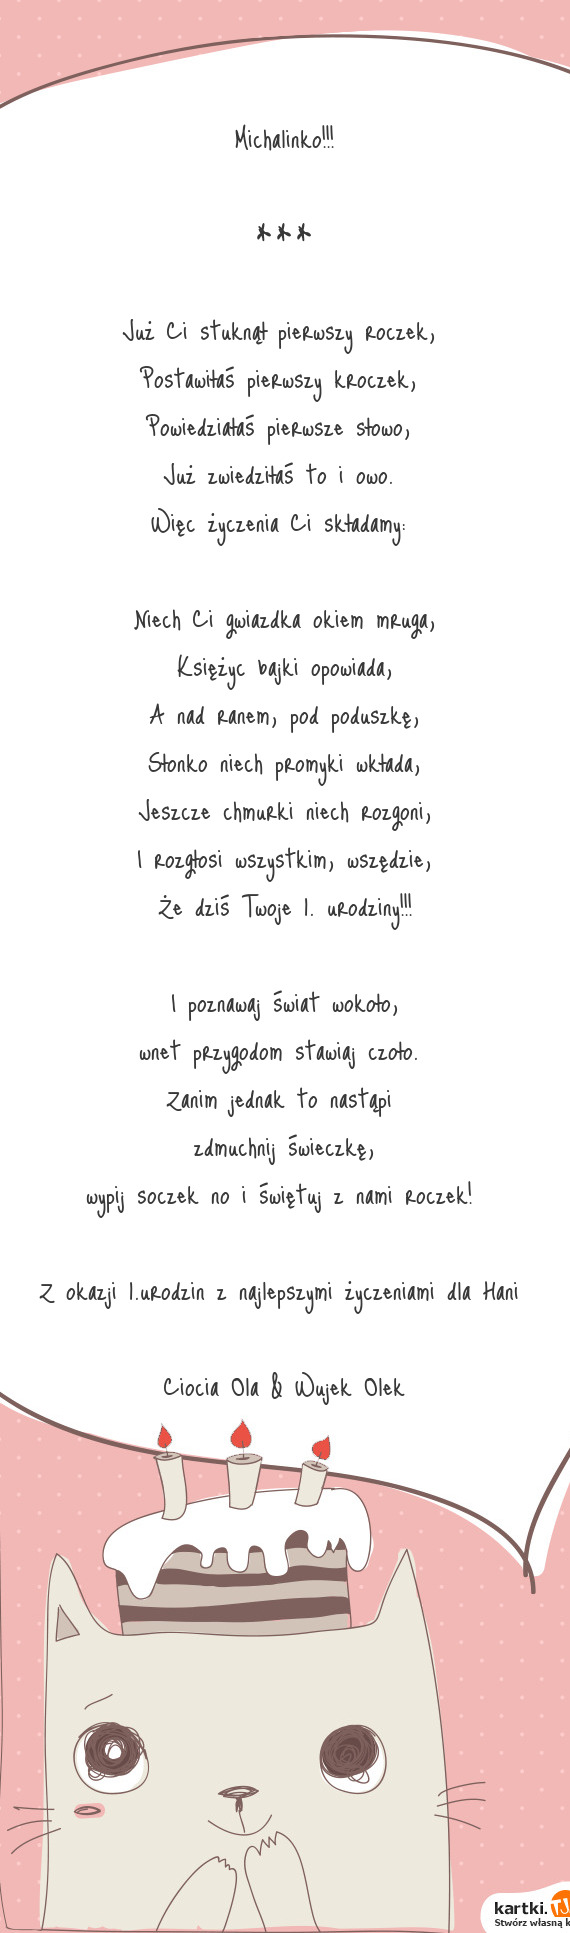 Michalinko!!!
***
Już Ci stuknął pierwszy roczek,
Postawiłaś pierwszy kroczek,
Powiedziałaś pierwsze słowo,
Już zwiedziłaś to i owo.
Więc życzenia Ci składamy:
Niech Ci gwiazdka okiem mruga,
Księżyc bajki opowiada,
A nad ranem, pod poduszkę,
Słonko niech promyki wkłada,
Jeszcze chmurki niech rozgoni,
I rozgłosi wszystkim, wszędzie,
Że dziś Twoje 1. urodziny!!!
I poznawaj świat wokoło,
wnet przygodom stawiaj czoło.
Zanim jednak to nastąpi
zdmuchnij świeczkę,
wypij soczek no i świętuj z nami roczek!
Z okazji 1.urodzin z najlepszymi życzeniami dla Hani
Ciocia Ola & Wujek Olek
kartki.TJ
Stwórz własną k